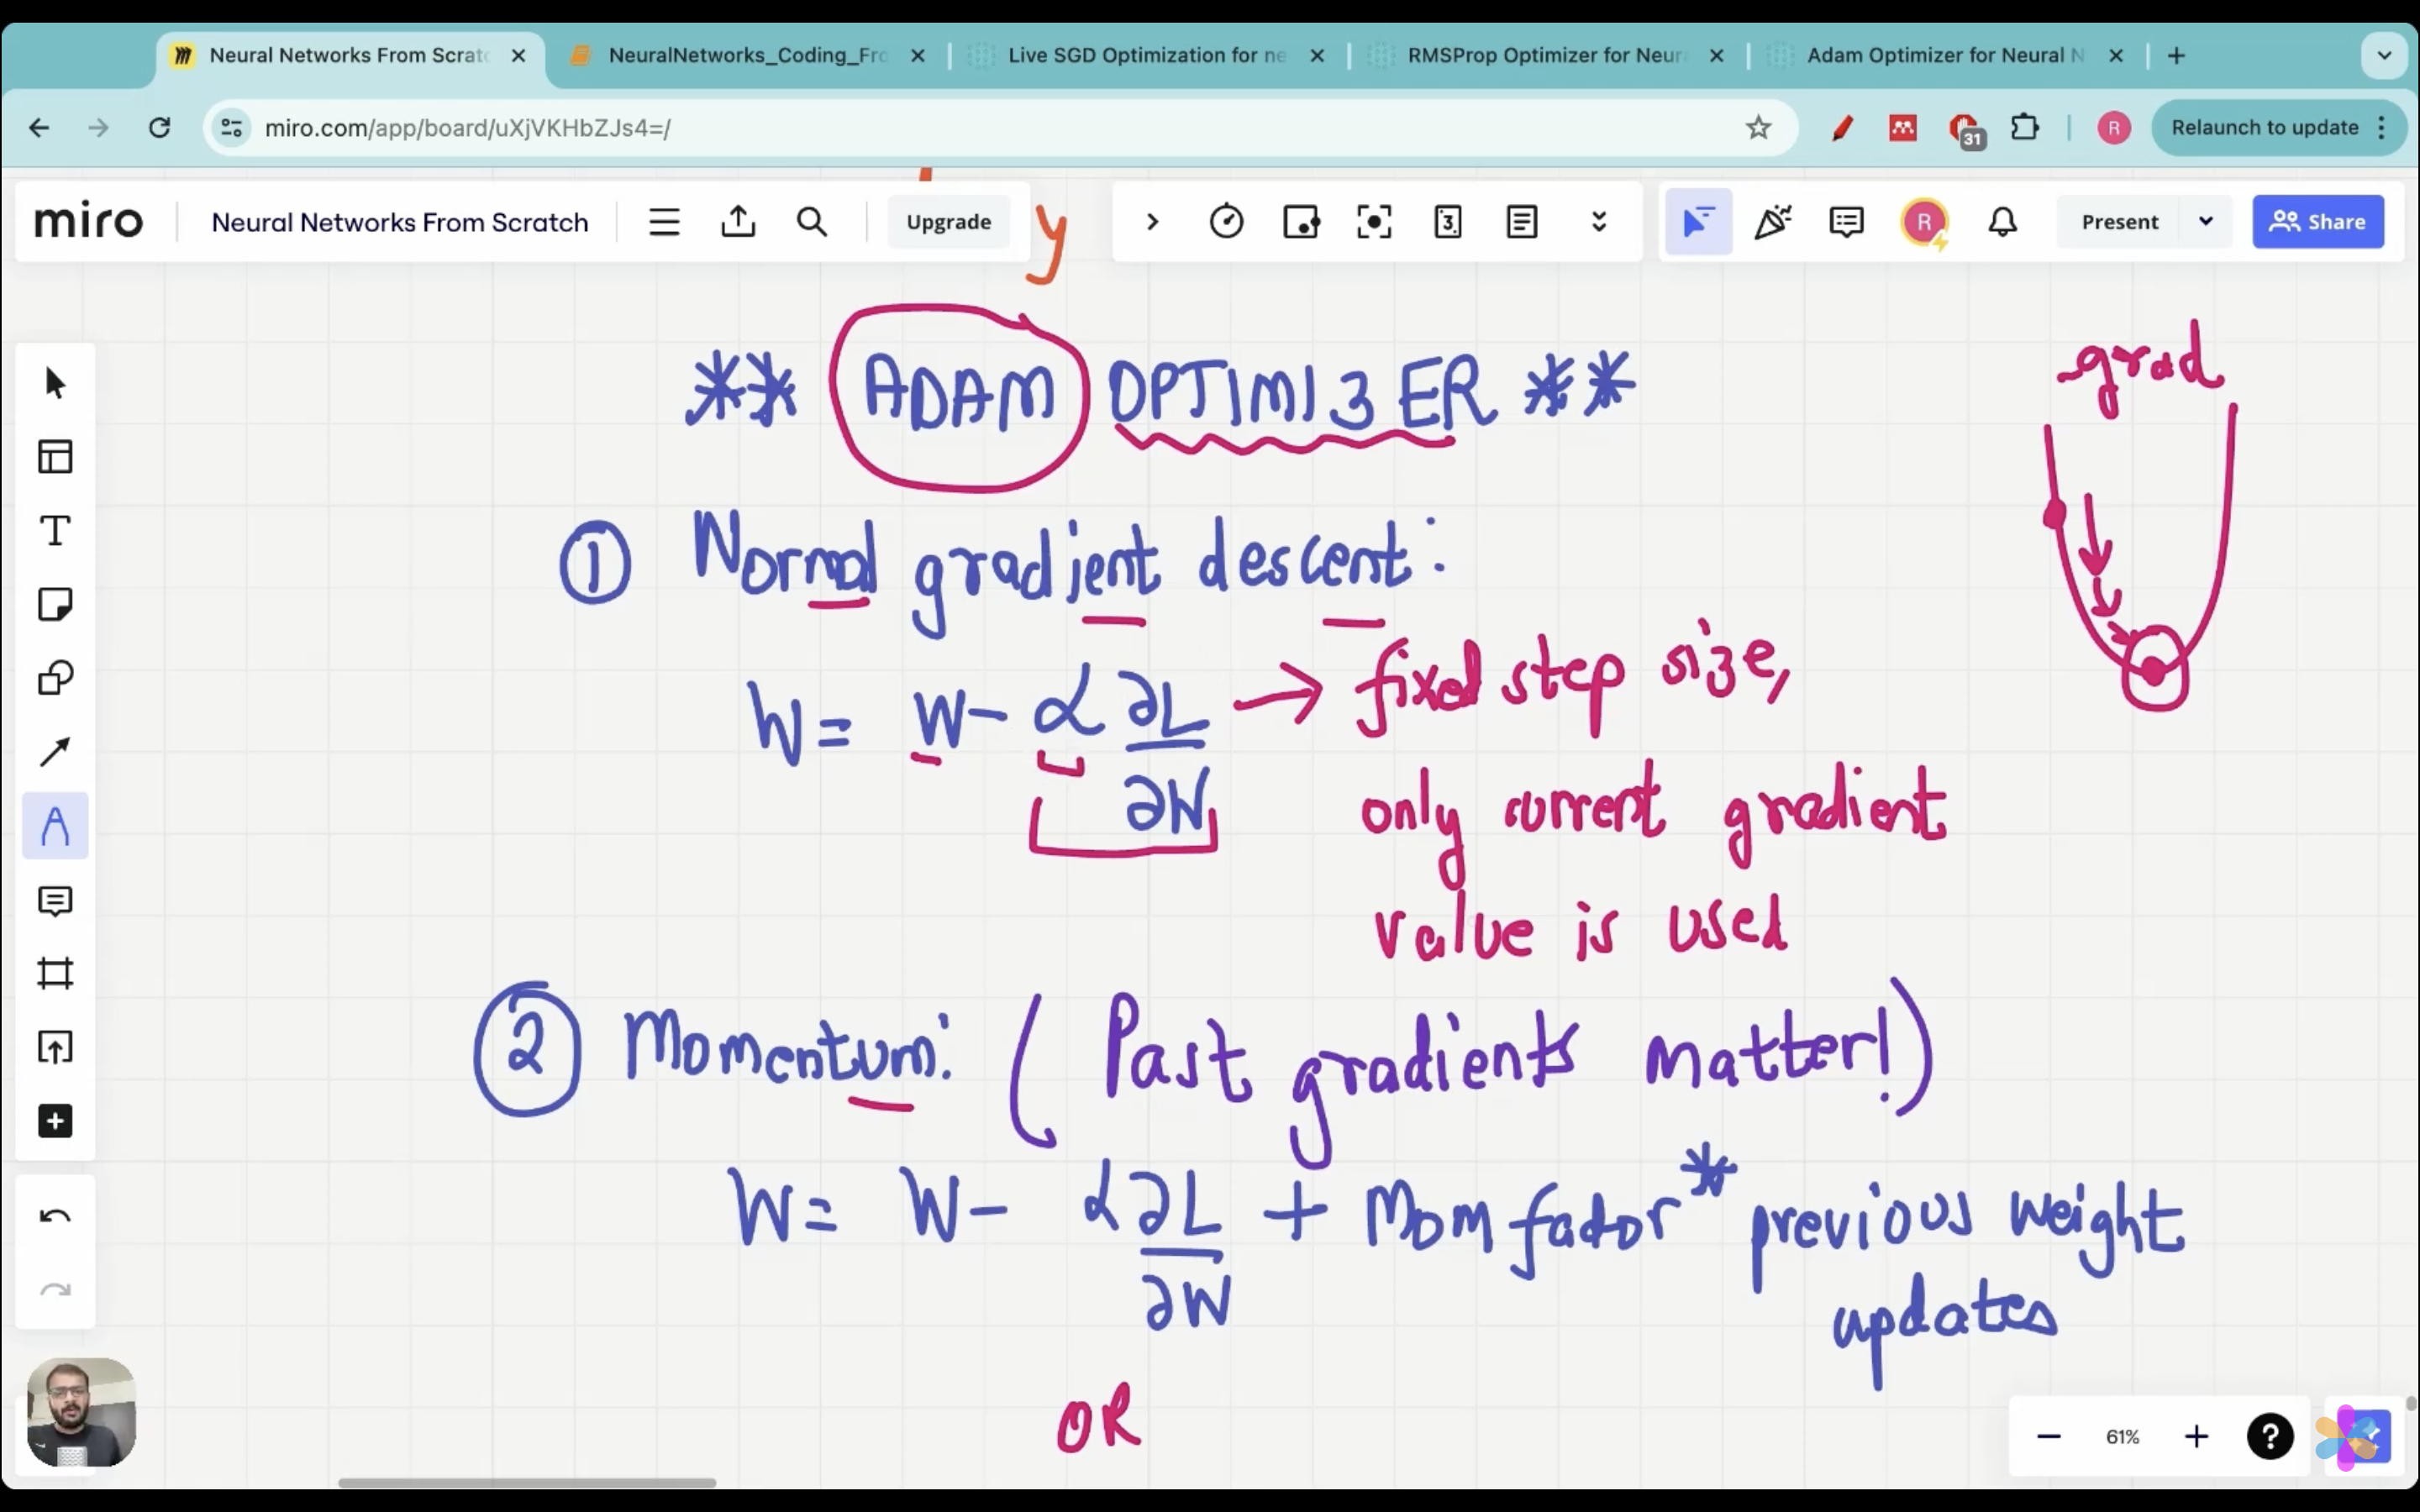 Neural Networks From Scratc
NeuralNetworks_Coding_Fro
Live SGD Optimization for ne
RMSProp Optimizer for Neur
Adam Optimizer for Neural N
miro.com/app/board/uXjVKHbZJs4=/
31
R
Relaunch to update
miro
Neural Networks From Scratch
Upgrade
y
3
R
Present
Share
** ADAM OPTIMI3ER **
grad
① Normal gradient descent:
W = W - α ∂L/∂W → fixed step size,
only current gradient
value is used
② Momentum: (Past gradients matter!)
W = W - α ∂L/∂W + Mom factor * previous weight
updates
OR
61%